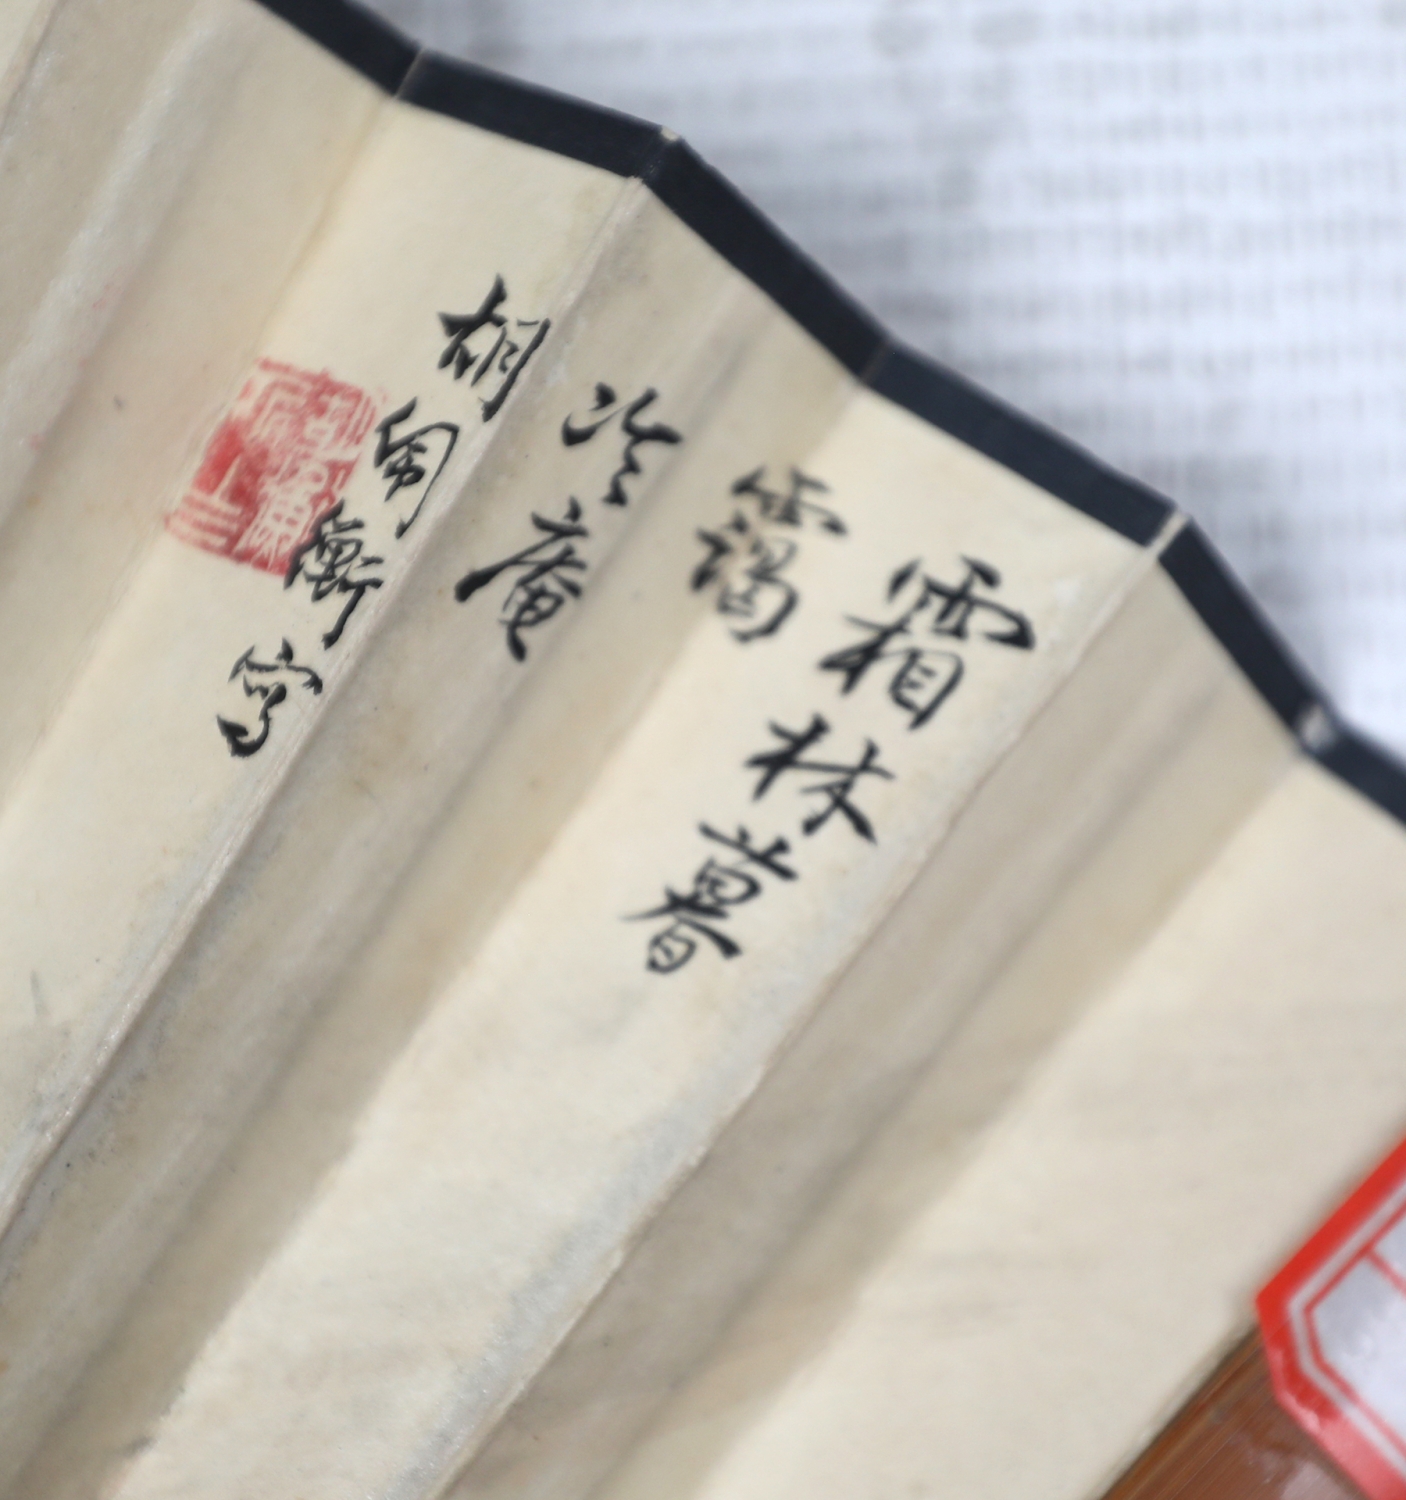 霜林暮
靄
冷庵
胡佩衡寫